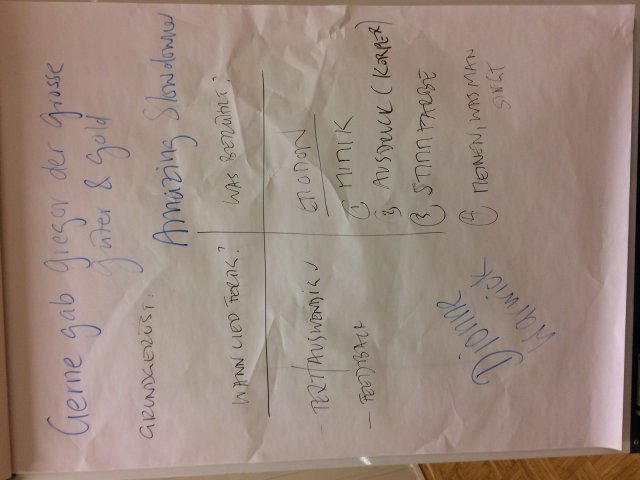 Gerne gab Gregor der Grosse
Güter & Gold
Amazing Slowdowner
GRUNDGERÜST:
WANN LIED FERTIG?
- TEXT/AUSWENDIG ✓
- FEEDBACK
WAS BERÜHRT?
EMOTION
① MIMIK
② AUSDRUCK (KÖRPER)
③ STIMMFARBE
④ MEINEN, WAS MAN
SINGT
Dionne
Warwick